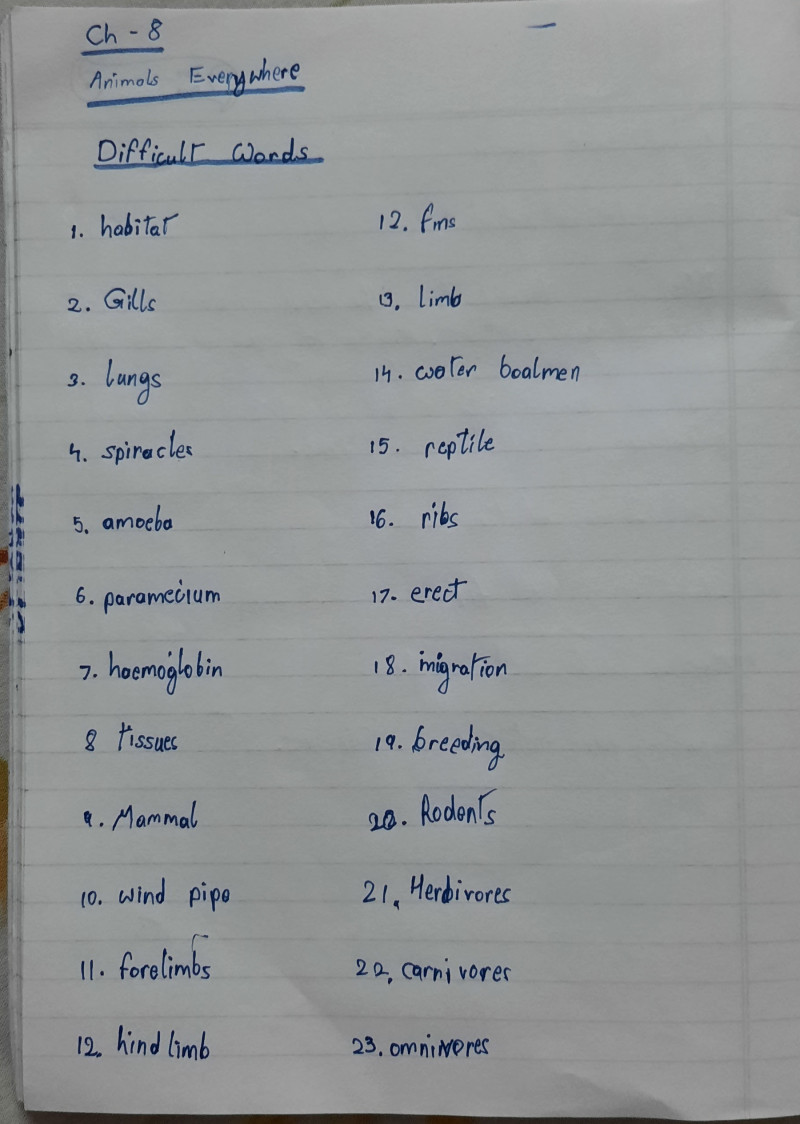 Ch - 8
Animals Everywhere
Difficult Words
1. habitat
2. Gills
3. lungs
4. spiracles
5. amoeba
6. paramecium
7. haemoglobin
8 tissues
9. Mammal
10. wind pipe
11. forelimbs
12. hind limb
12. fins
13. limb
14. water boalmen
15. reptile
16. ribs
17. erect
18. migration
19. breeding
20. Rodents
21. Herbivores
22. carnivores
23. omnivores